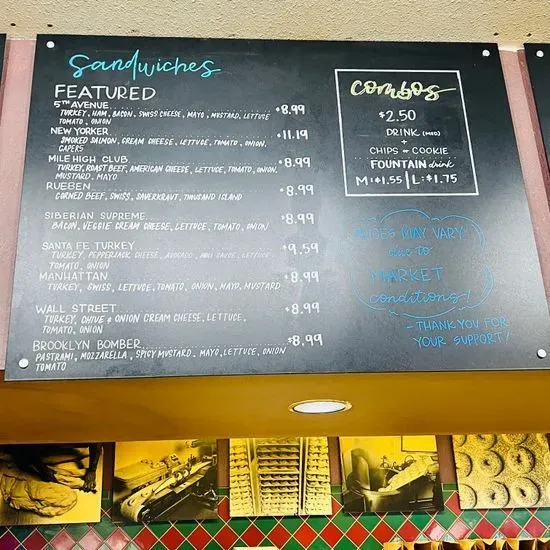 Sandwiches
FEATURED
5TH AVENUE $8.99
TURKEY, HAM, BACON, SWISS CHEESE, MAYO, MUSTARD, LETTUCE
TOMATO, ONION
NEW YORKER $11.19
SMOKED SALMON, CREAM CHEESE, LETTUCE, TOMATO, ONION,
CAPERS
MILE HIGH CLUB $8.99
TURKEY, ROAST BEEF, AMERICAN CHEESE, LETTUCE, TOMATO, ONION,
MUSTARD, MAYO
RUEBEN $8.99
CORNED BEEF, SWISS, SAVERKRAUT, THOUSAND ISLAND
SIBERIAN SUPREME $8.99
BACON, VEGGIE CREAM CHEESE, LETTUCE, TOMATO, ONION
SANTA FE TURKEY $9.59
TURKEY, PEPPERJACK CHEESE, AVOCADO, SAUCE, LETTUCE
TOMATO, ONION
MANHATTAN $8.99
TURKEY, SWISS, LETTUCE, TOMATO, ONION, MAYO, MUSTARD
WALL STREET $8.99
TURKEY, CHIVE & ONION CREAM CHEESE, LETTUCE,
TOMATO, ONION
BROOKLYN BOMBER $8.99
PASTRAMI, MOZZARELLA, SPICY MUSTARD, MAYO, LETTUCE, ONION
TOMATO
Combos
$2.50
DRINK (MED)
+
CHIPS or COOKIE
FOUNTAIN drink
M: $1.55 | L: $1.75
PRICES MAY VARY
due to
MARKET
conditions!
- THANK YOU FOR
YOUR SUPPORT!